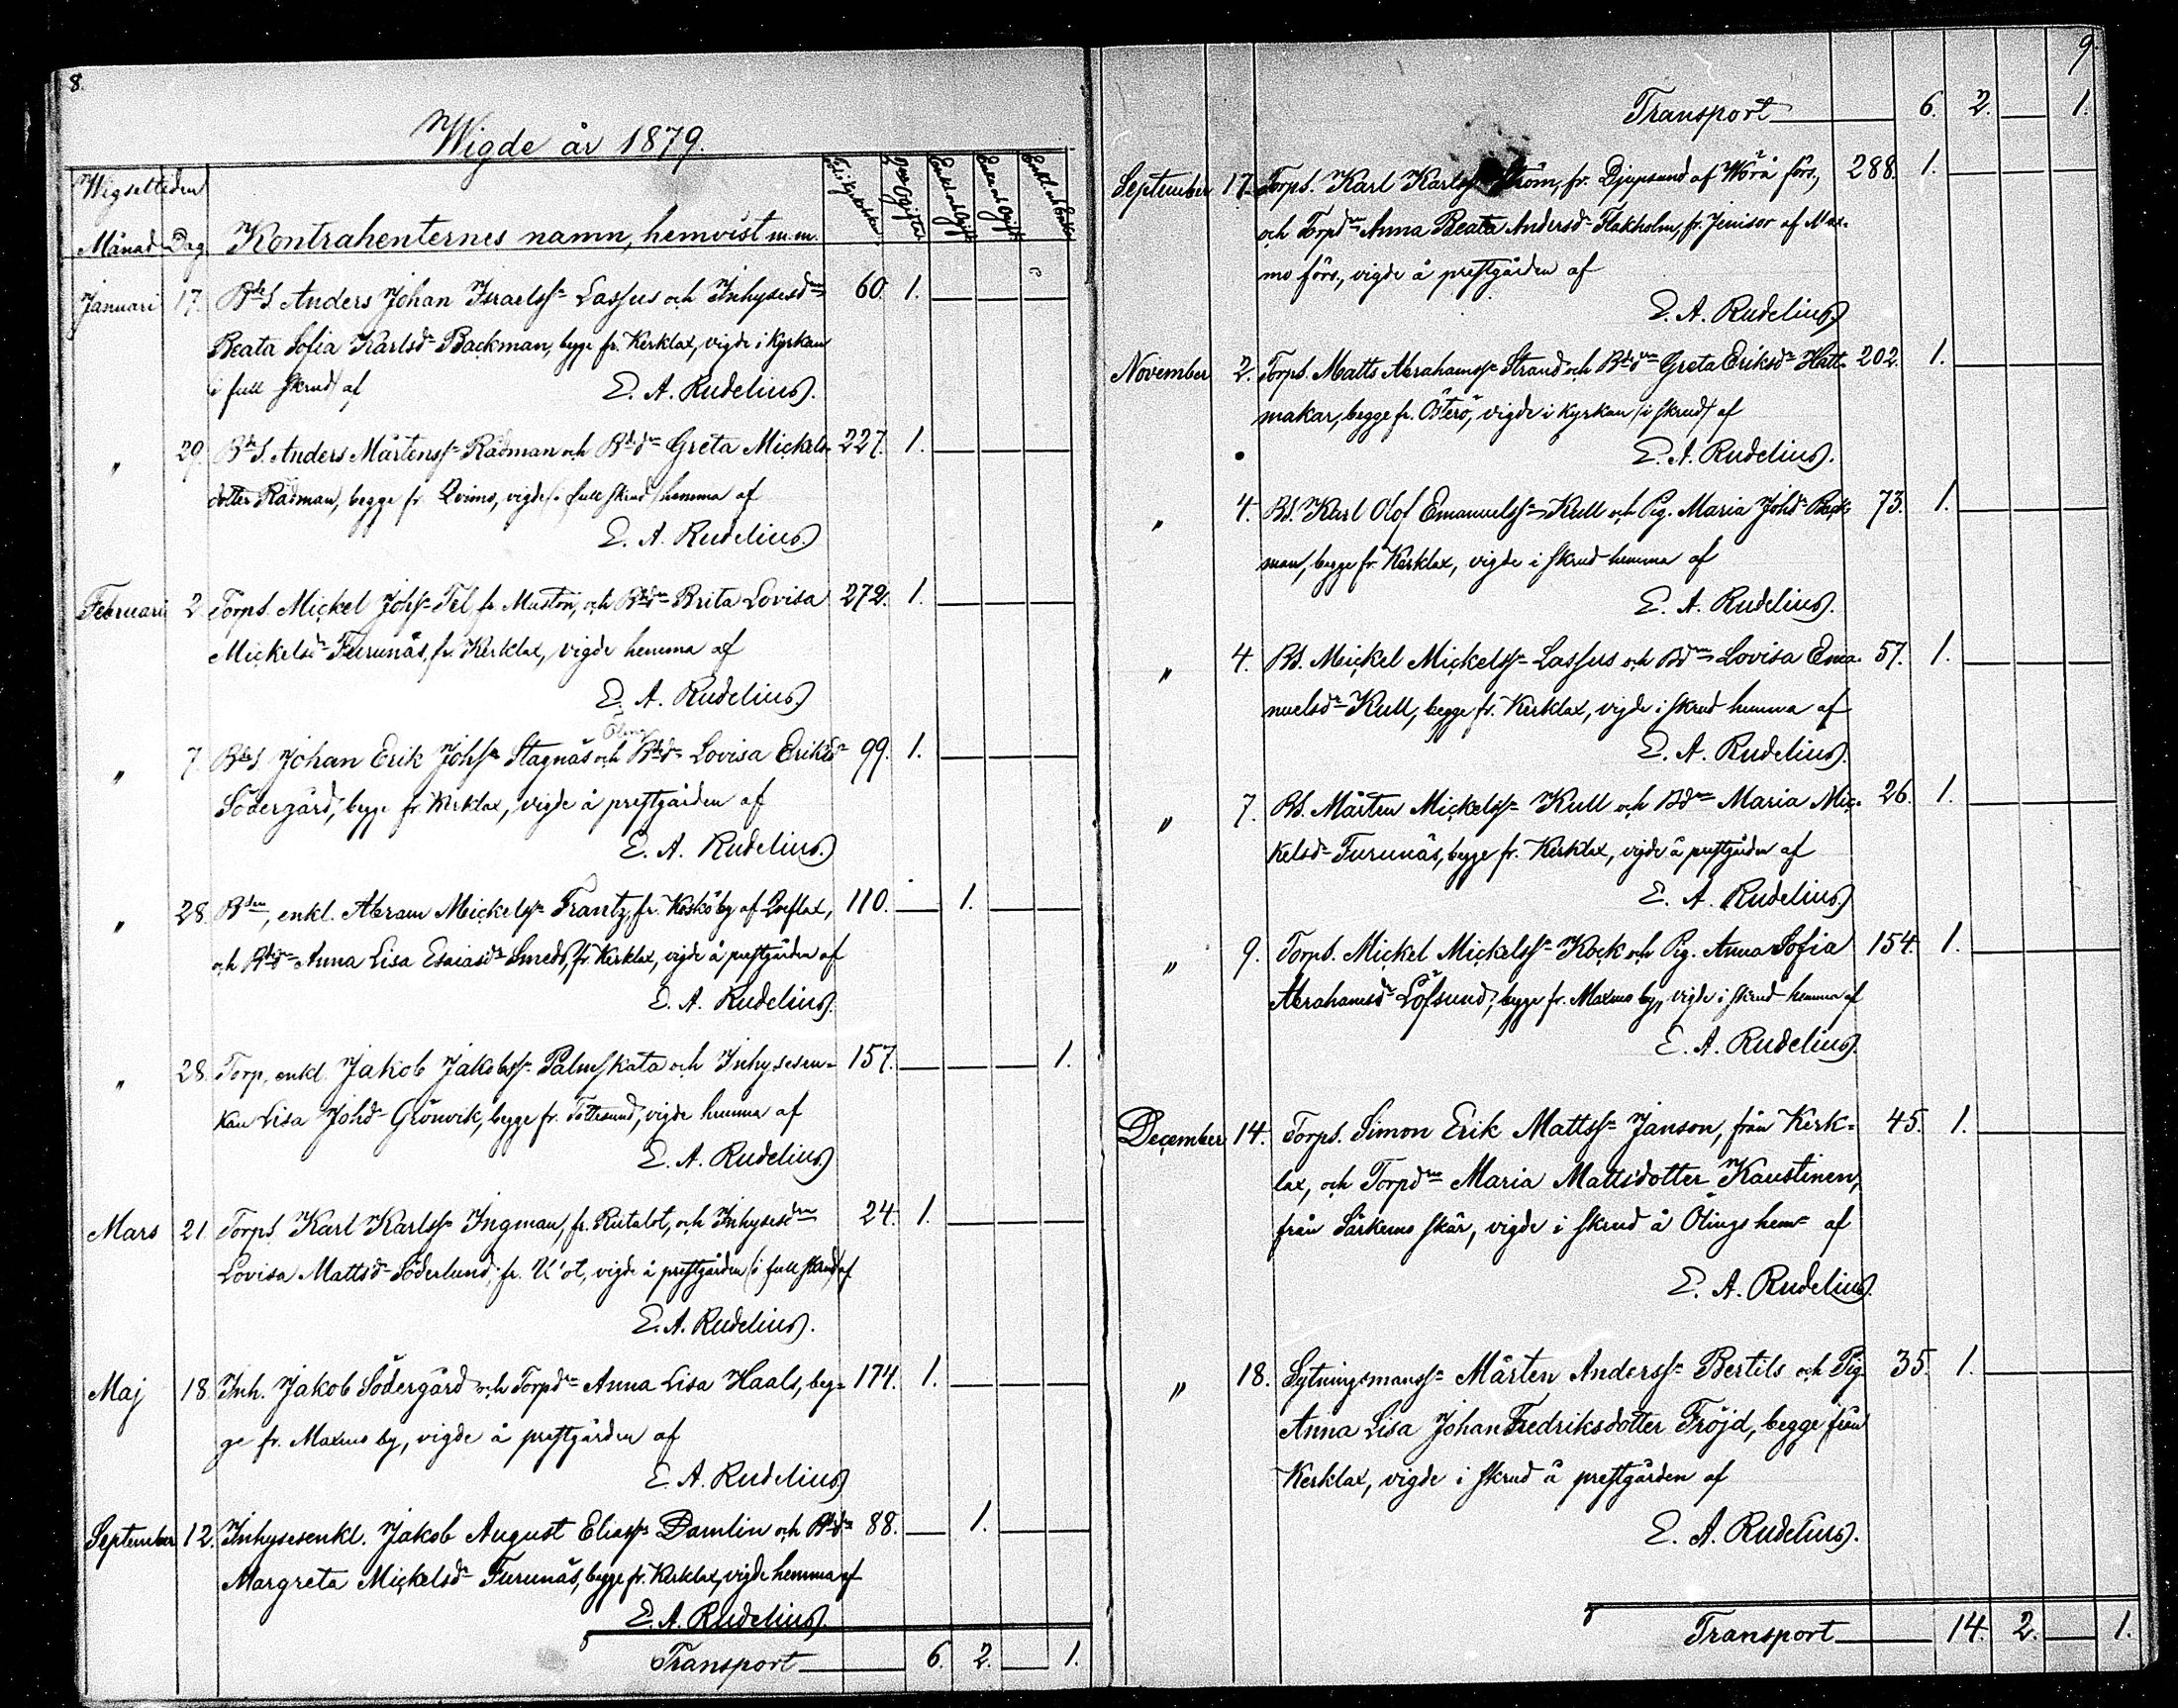 8.
Wigde år 1879.
Wigseltiden
Månad Dag Kontrahenternes namn, hemvist m.m.
Januari 17. Bds. Anders Johan Israelss. Lassus och Inhysesdn 60. 1.
Beata Sofia Karlsdr Backman, begge fr. Kerklax, vigde i Kyrkan
(i full skrud) af E. A. Rudelius.
" 29. Bds. Anders Mårtenss. Rådman och Bddn Greta Mickels- 227. 1.
dotter Rådman, begge fr. Qvimo, vigde (i full skrud) hemma af
E. A. Rudelius.
Februari 2 Torps. Mickel Johss. Tel, fr. och Bddn Brita Lovisa 272. 1.
Mickelsdr Furunäs, fr. Kerklax, vigde hemma af
E. A. Rudelius.
" 7. Bds. Johan Erik Johss. Stagnäs och Bddr Lovisa Eriksdr 99. 1.
Södergård, begge fr. Kerklax, vigde å prestgården af
E. A. Rudelius.
" 28. Bden, enkl. Abram Mickelss. Frantz, fr. Koskö by af Qveflax, 110. 1.
och Bddn Anna Lisa Esaiasdr Smeds, fr. Kerklax, vigde å prestgården af
E. A. Rudelius.
" 28. Torp. enkl. Jakob Jakobss. Palmskata och Inhysesen- 157. 1.
kan Lisa Johdr Grönvik, begge fr. Tottesund, vigde hemma af
E. A. Rudelius.
Mars 21. Torps. Karl Karlss. Ingman, fr. Kutalot, och Inhysesdrn 24. 1.
Lovisa Mattsdr Söderlund, fr. K'ot, vigde å prestgården (i full skrud) af
E. A. Rudelius.
Maj 18 Inh. Jakob Södergård och Torpdn Anna Lisa Haals, beg- 174. 1.
ge fr. Maxmo by, vigde å prestgården af
E. A. Rudelius.
September 12. Inhysesenkl. Jakob August Eliass. Damlin och Bddn 88. 1.
Margreta Mickelsdr Furunäs, begge fr. Kerklax, vigde hemma af
E. A. Rudelius.
Transport 6. 2. 1.
9.
Transport 6. 2. 1.
September 17. Torps. Karl Karlss. Ström, fr. Djupsund af Wörå förs., 288. 1.
och Torpdn Anna Beata Andersdr Flakholm, fr. Jenisor af Max-
mo förs., vigde å prestgården af
E. A. Rudelius.
November 2. Torps. Matts Abrahamss. Strand och Bddn Greta Eriksdr Hatt- 202. 1.
makar, begge fr. Österö, vigde i kyrkan (i skrud) af
E. A. Rudelius.
" 4. Bs. Karl Olof Emanuelss. Kull och Pig. Maria Johdr Back- 73. 1.
man, begge fr. Kerklax, vigde i skrud hemma af
E. A. Rudelius.
" 4. Bs. Mickel Mickelss. Lassus och Bdn Lovisa Ema- 57. 1.
nuelsdr Kull, begge fr. Kerklax, vigde i skrud hemma af
E. A. Rudelius.
" 7. Bs. Mårten Mickelss. Kull och Bdn Maria Mic- 26. 1.
kelsdr Furunäs, begge fr. Kerklax, vigde å prestgården af
E. A. Rudelius.
" 9. Torps. Mickel Mickelss. Kock och Pig. Anna Sofia 154. 1.
Abrahamsdr Löfsund, begge fr. Maxmo by, vigde i skrud hemma af
E. A. Rudelius.
December 14. Torps. Simon Erik Mattss. Janson, från Kerk- 45. 1.
lax, och Torpdn Maria Mattsdotter Kaustinen,
från Särkemo skär, vigde i skrud å Ölings hem af
E. A. Rudelius.
" 18. Sytningsmanss. Mårten Anderss. Bertils och Pig. 35. 1.
Anna Lisa Johan Fredriksdotter Fröjd, begge från
Kerklax, vigde i skrud å prestgården af
E. A. Rudelius.
Transport 14. 2. 1.